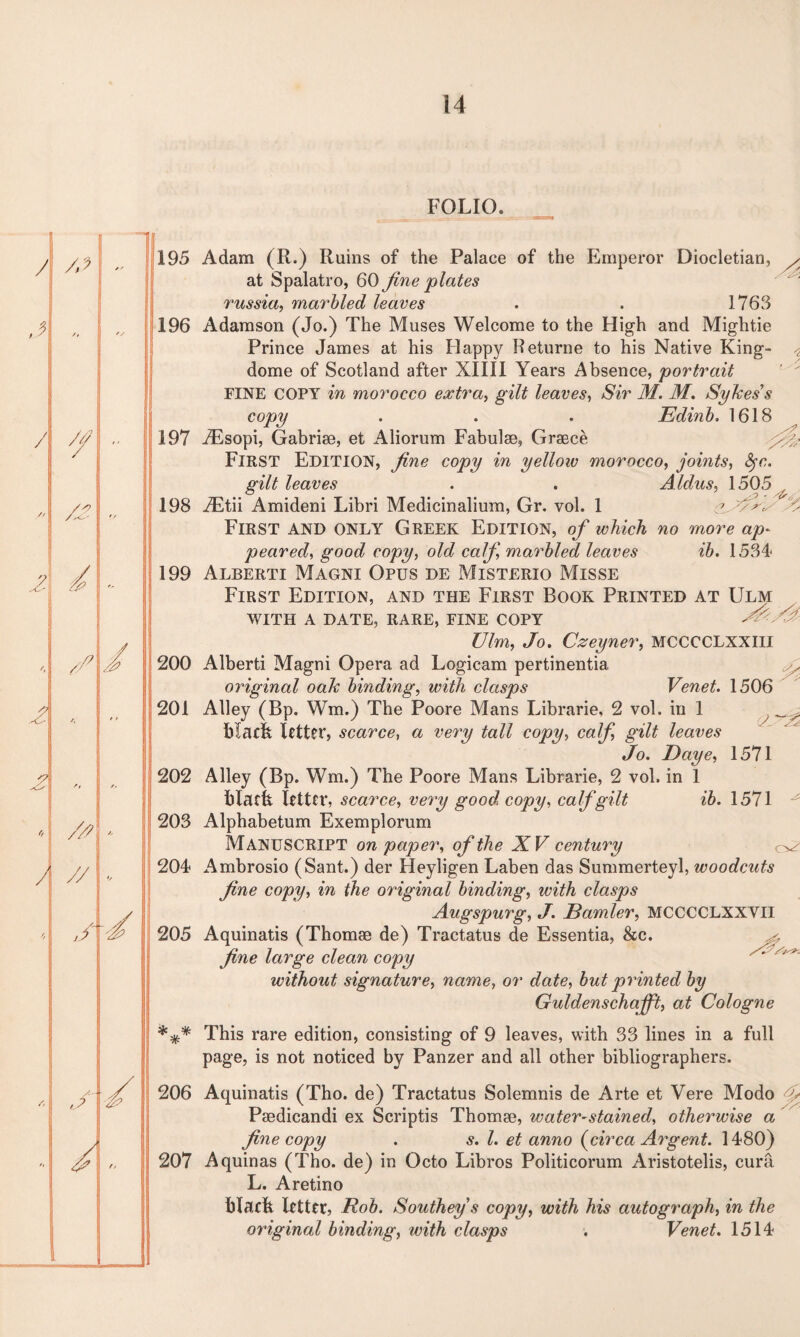 14
FOLIO.
195 Adam (R.) Ruins of the Palace of the Emperor Diocletian,
at Spalatro, 60 fine plates
russia, marbled leaves . . 1763
196 Adamson (Jo.) The Muses Welcome to the High and Mightie
Prince James at his Happy Returne to his Native King-
dome of Scotland after XIIII Years Absence, portrait
FINE COPY in morocco extra, gilt leaves, Sir M. M. Sykes's
copy . . . Edinb. 1618
197 Æsopi, Gabriæ, et Aliorum Fabulæ, Græcè
FIRST EDITION, fine copy in yellow morocco, joints, &c.
gilt leaves . . Aldus, 1505
198 Ætii Amideni Libri Medicinalium, Gr. vol. 1
FIRST AND ONLY GREEK EDITION, of which no more ap-
peared, good copy, old calf, marbled leaves ib. 1534
199 ALBERTI MAGNI OPUS DE MISTERIO MISSE
FIRST EDITION, AND THE FIRST BOOK PRINTED AT ULM
WITH A DATE, RARE, FINE COPY
Ulm, Jo. Czeyner, MCCCCLXXIII
200 Alberti Magni Opera ad Logicam pertinentia
original oak binding, with clasps Venet. 1506
201 Alley (Bp. Wm.) The Poore Mans Librarie, 2 vol. in 1
black letter, scarce, a very tall copy, calf, gilt leaves
Jo. Daye, 1571
202 Alley (Bp. Wm.) The Poore Mans Librarie, 2 vol. in 1
black letter, scarce, very good copy, calf gilt ib. 1571
203 Alphabetum Exemplorum
MANUSCRIPT on paper, of the XV century
204 Ambrosio (Sant.) der Heyligen Laben das Summerteyl, woodcuts
fine copy, in the original binding, with clasps
Augspurg, J. Bamler, MCCCCLXXVII
205 Aquinatis (Thomæ de) Tractatus de Essentia, &c.
fine large clean copy
without signature, name, or date, but printed by
Guldenschafft, at Cologne
*** This rare edition, consisting of 9 leaves, with 33 lines in a full
page, is not noticed by Panzer and all other bibliographers.
206 Aquinatis (Tho. de) Tractatus Solemnis de Arte et Vere Modo
Pædicandi ex Scriptis Thomæ, water-stained, otherwise a
fine copy . s. l. et anno (circa Argent. 1480)
207 Aquinas (Tho. de) in Octo Libros Politicorum Aristotelis, curâ
L. Aretino
black letter, Rob. Southey's copy, with his autograph, in the
original binding, with clasps . Venet. 1514